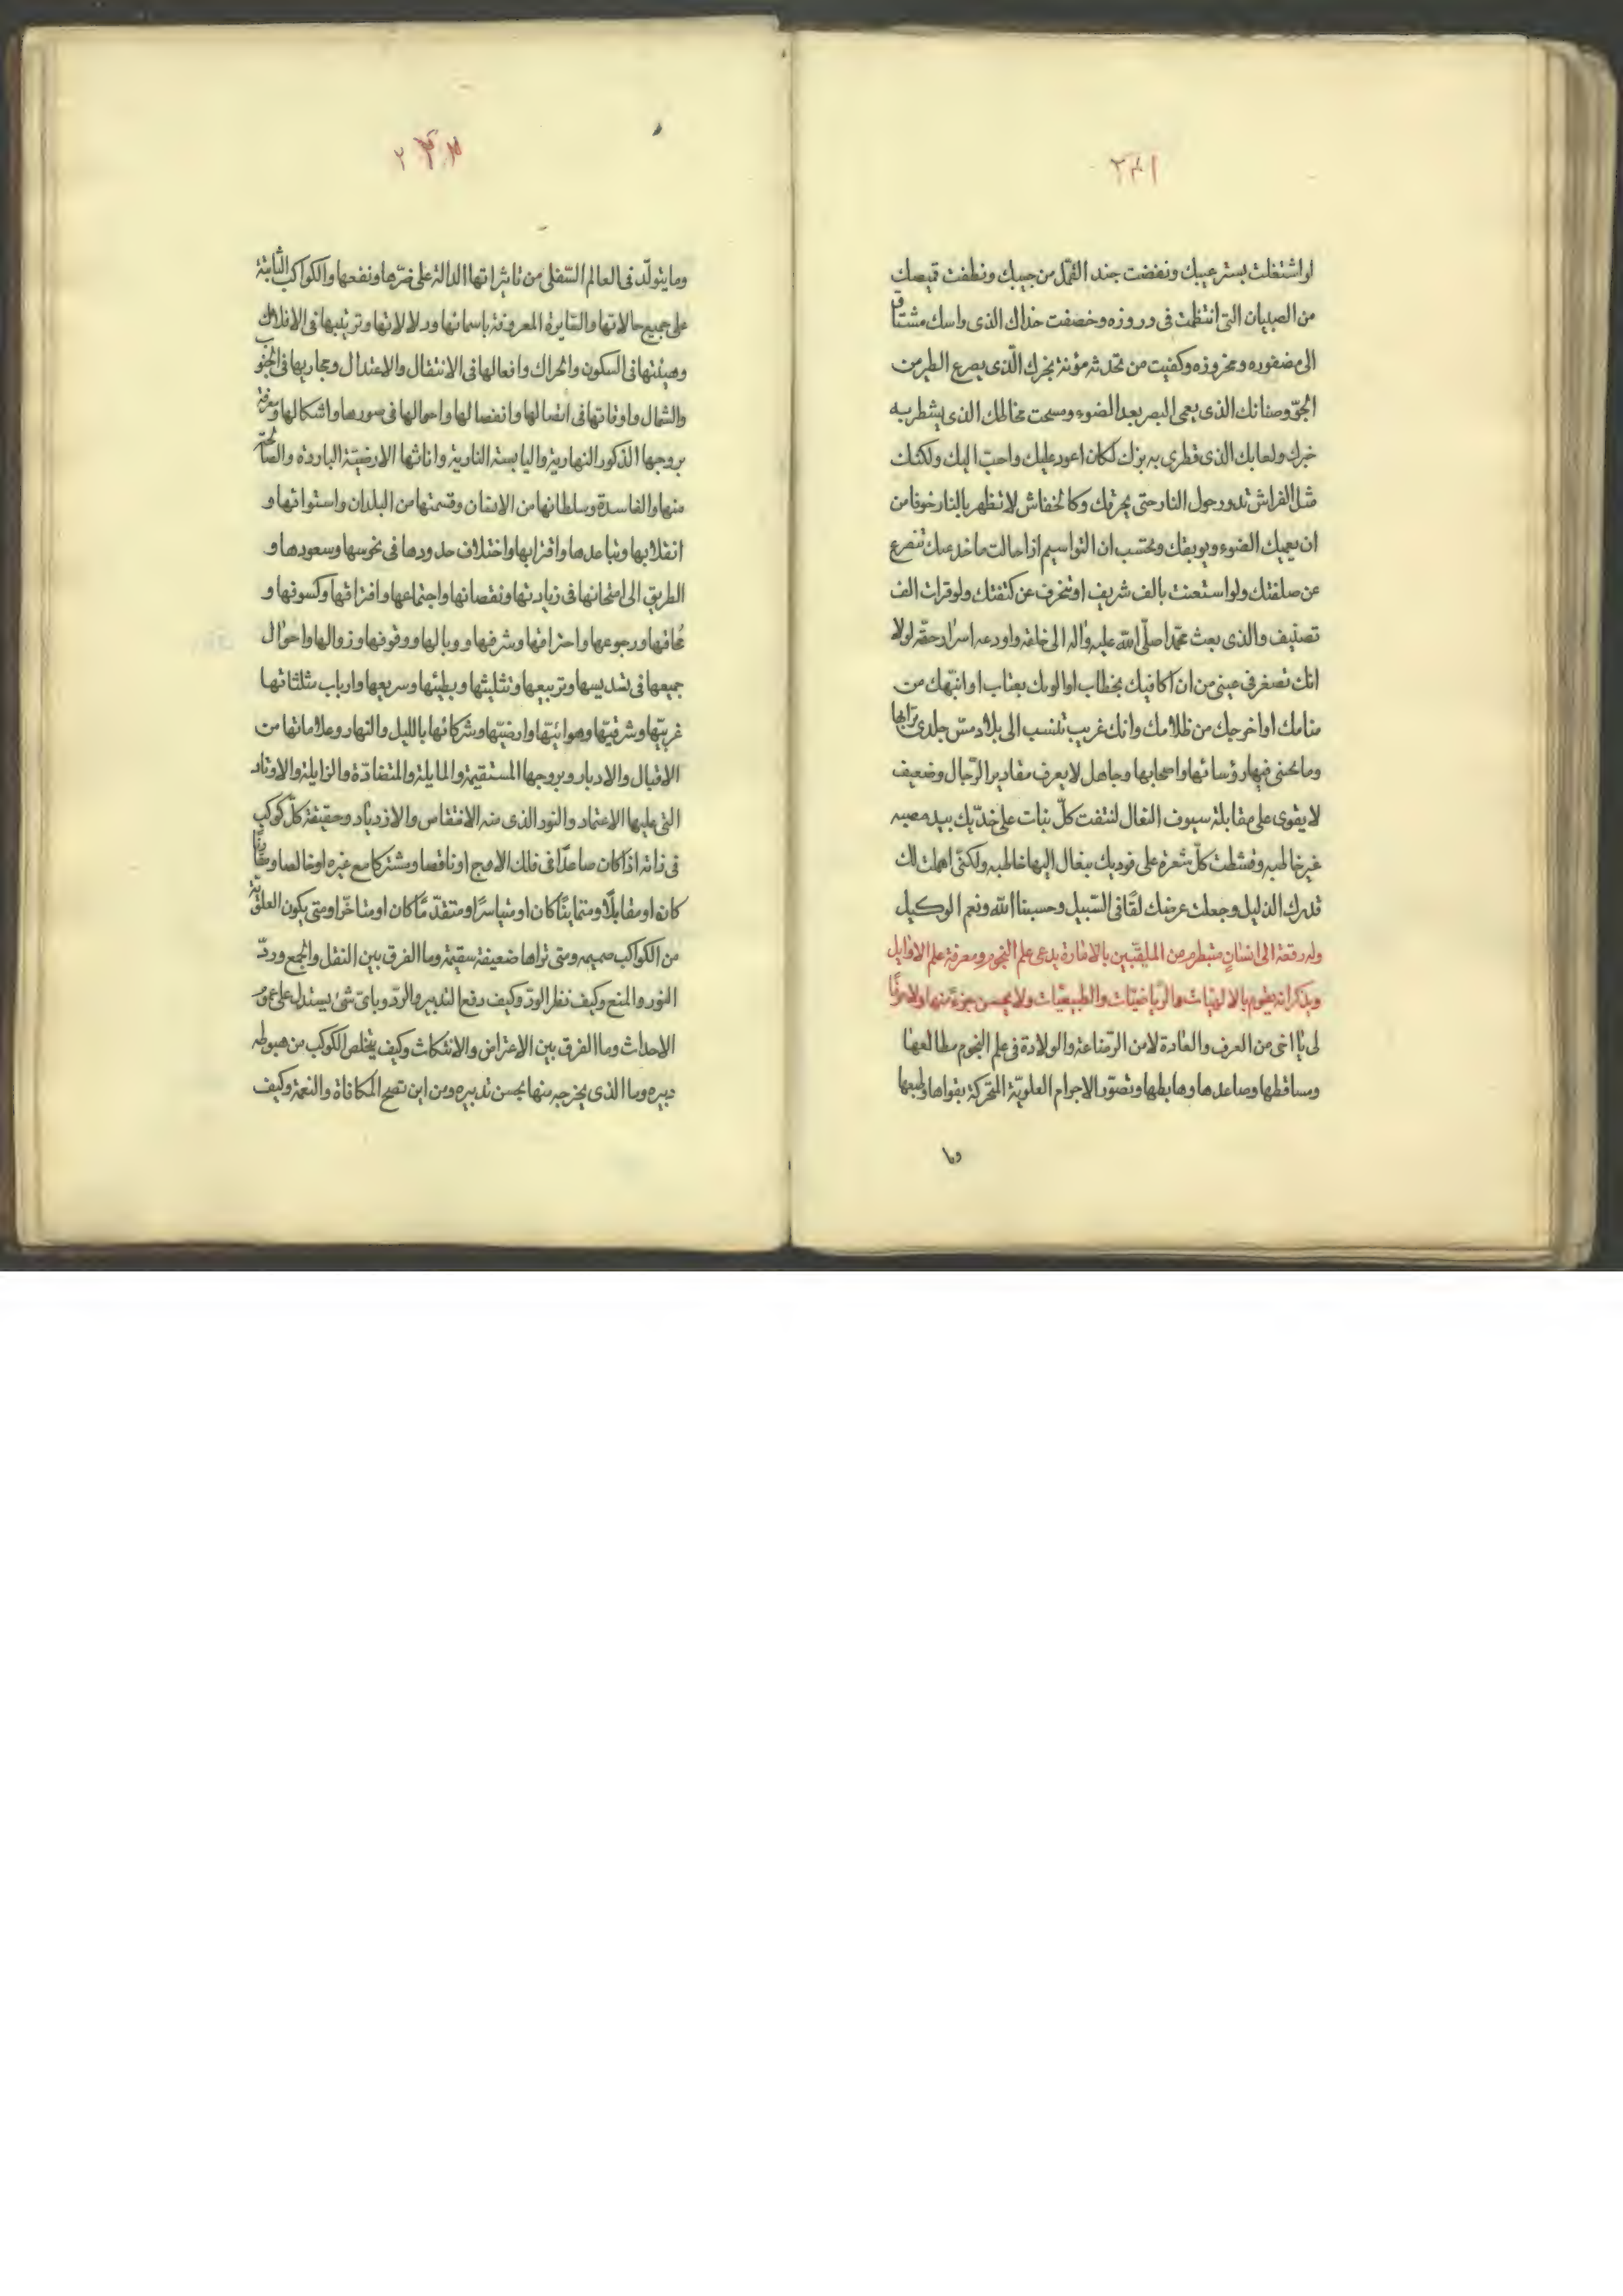 ٢٣١
او اشتغلت بستر عيبك ونفضت جند القمّل من جيبك ونظفت قميصك
من الصبيان التى انتظمت فى دروزه وخصفت حذاك الذى راسك مشتاق
الى مضفوره ومخروزه وكفيت من تحدثه مؤنة بخرك الّذى يصرع الطير من
الجوّ وصنانك الذى يعمى البصر بعد الضوء ومسحت مخاطك الذى يشطر به
خبزك ولعابك الذى قطرى به بزك لكان اعود عليك واحبّ اليك ولكنّك
مثل الفراش تدور حول النار حتى يحرقك وكالخفاش لا تظهر بالنهار خوفا من
ان يعميك الضوء ويوبقك وتحتسب ان التواسيم اذا حالت ما خدعك تنصرع
عن صلفتك ولو استعنت بالف شريف او تنحرف عن كتفتك ولو قرات الف
تصنيف والذى بعث محمّدا صلّى الله عليه واله الى خلقه واودعه اسرار حقّه لولا
انك تصغر فى عينى من ان اكافيك بخطاب او الومك بعتاب او انبّهك من
منامك او اخرجك من ظلامك وانك غريب تنسب الى بلاد مسّ جلدى ترابها
وما نحنى فيها رؤسائها واصحابها وجاهل لا يعرف مقادير الرّجال وضعيف
لا يقوى على مقابلة سيوف النعال لنتفت كلّ نبات على خدّيك بيد مصيبه
غير خاطبه وقشطت كلّ شعرة على فوديك بنعال اليها خاطبه ولكنّى اهملت لك
قدرك الذليل وجعلت عرضك لقًا فى السّبيل وحسبنا الله ونعم الوكيل
وله رقعة الى انسانٍ متبطرم من الملقّبين بالامارة يدعى علم النجوم ومعرفة علم الاوايل
ويذكر انه يقوم بالالهيّات والرّياضيّات والطبيعيّات ولا يحسن جزءً منها ولا حرفًا
لى يا اخى من العرف والعادة لا من الرّضاعة والولادة فى علم النجوم مطالعها
ومساقطها وصاعدها وهابطها وتصوّر الاجرام العلويّة المتحركة بقواها وطبعها
وما
٢٣٢
وما يتولّد فى العالم السّفلى من تاثيراتها الدالة على ضرّها ونفعها والكواكب الثابتة
على جميع حالاتها والسّايرة المعروفة باسمائها ودلالاتها وترتيبها فى الافلاك
وهيئتها فى السكون والحراك وافعالها فى الانتقال والاعتدال ومجاريها فى الجنوب
والشمال واوقاتها فى اتصالها وانفصالها واحوالها فى صورها واشكالها ومعرفة
بروجها الذكور النهارية واليابسة النارية واناثها الارضيّة الباردة والصّالحة
منها والفاسدة وسلطانها من الانسان وقسمتها من البلدان واستوائها و
انقلابها وتباعدها واقترابها واختلاف حدودها فى نحوسها وسعودها و
الطريق الى امتحانها فى زيادتها ونقصانها واجتماعها وافتراقها وكسوفها و
محاقها ورجوعها واحتراقها وشرفها ووبالها ووقوفها وزوالها واحوال
جميعها فى تسديسها وتربيعها وتثليثها وبطيئها وسريعها وارباب مثلثاتها
غربيّها وشرقيّها وهوائيّها وارضيّها وشركائها بالليل والنهار وعلاماتها من
الاقبال والادبار وبروجها المستقيمة والمايلة والمتضادّة والزايلة والاوتاد
التى عليها الاعتماد والنور الذى منه الانتقاص والازدياد وحقيقة كلّ كوكب
فى ذاته اذا كان صاعدًا فى فلك الاوج او ناقصا ومشتركا مع غيره او خالصا ومقارنًا
كان او مقابلًا ومتيامنًا كان او متياسرًا ومتقدّمًا كان او متاخّرا ومتى يكون العلويّة
من الكواكب صميمه ومتى تراها ضعيفة سقيمة وما الفرق بين النقل والجمع وردّ
النور والمنع وكيف نظر الودّ وكيف دفع التدبير والردّ وباىّ شئ يستدل على
الاحداث وما الفرق بين الاعتراض والانتكاث وكيف يتخلص الكوكب من هبوطه
دبيره وما الذى يخرجه منها بحسن تدبيره ومن اين تصحّ المكافاة والنعمة وكيف